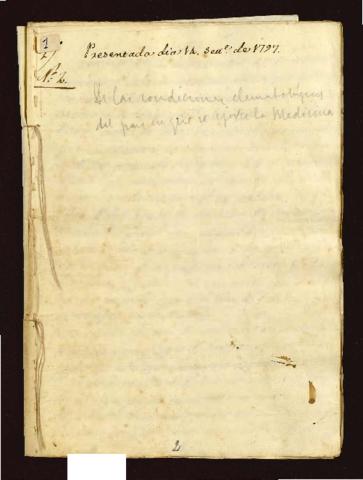 1
Presentada dia 14. de 1797.
Nº 2.
De las condiciones climatologicas
del pais en que se ejerce la Medicina
2